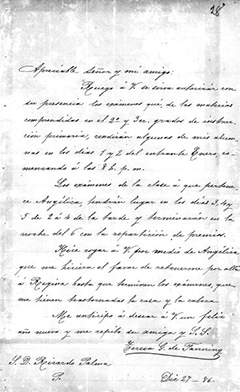 28
Apreciable señor y mi amigo:
Ruego á V. se sirva autorizar con
su presencia los exámenes que, de las materias
comprendidas en el 2º y 3er. grados de instruc-
ción primaria, rendirán algunas de mis alum-
nas en los días 1 y 2 del entrante Enero, co-
menzando á las 8 h. p. m.
Los exámenes de la clase á que pertene-
ce Angélica, tendrán lugar en los días 3, 4 y
5 de 2 á 4 de la tarde y terminarán en la
noche del 6 con la repartición de premios.
Hice rogar á V. por medio de Angélica
que me hiciera el favor de retenerme por allá
á Regina hasta que terminen los exámenes, que
me tienen trastornadas la casa y la cabeza.
Me anticipo á desear á V. un feliz
año nuevo y me repito su amiga y S.S.
Teresa G. de Fanning
S. D. Ricardo Palma
P.
Dic 27-96.